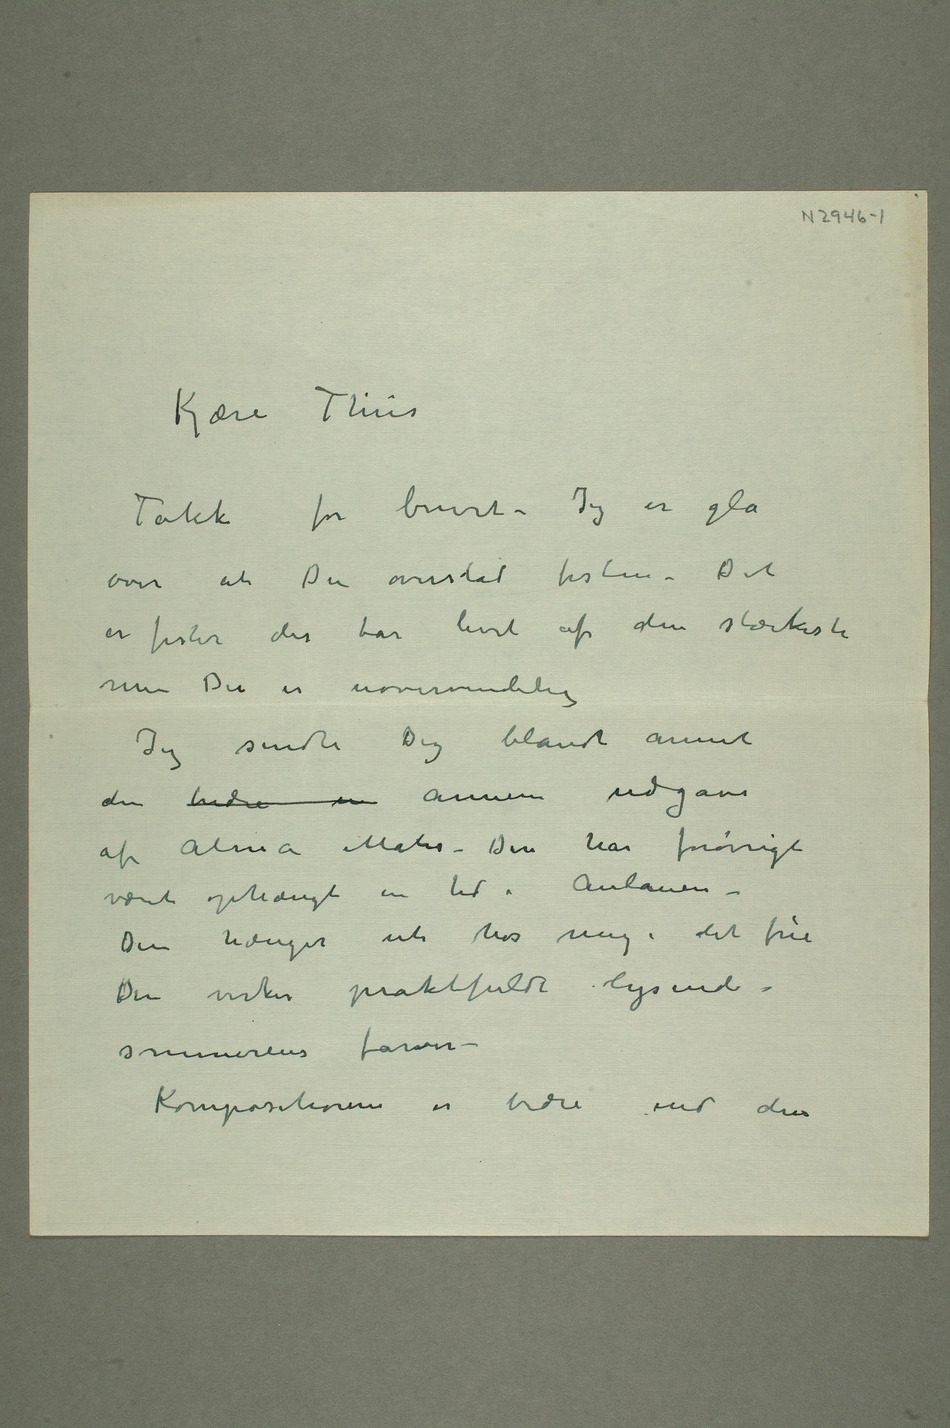 N 2946-1
Kjære Thiis
Takk for brevet – Jeg er gla
over at Du overstod festen – Det
er fester der tar livet af den stærkeste
men Du er uovervindelig
Jeg sendte Dig blandt annet
den bedre en annen udgave
af Alma Mater – Den har forøvrigt
været ophængt en tid i Aulaen –
Den hænger ute hos meg i det frie
Den virker praktfuldt lysende i
sommerens farver –
Kompositionen er bedre end den